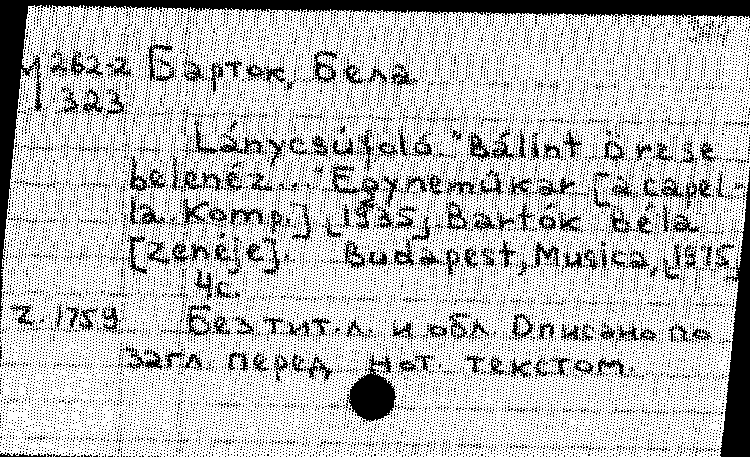 У 262-2 Барток, Бела
323
Lánycsúfoló "Bálint Örzse
belenéz..." Egynemûkar [a capel-
la. Komp.] [1935] Bartók Béla
[zenéje]. Budapest, Musica, [1975]
4 с.
Z. 1759 Без тит. л. и обл. Описано по
загл. перед нот. текстом.